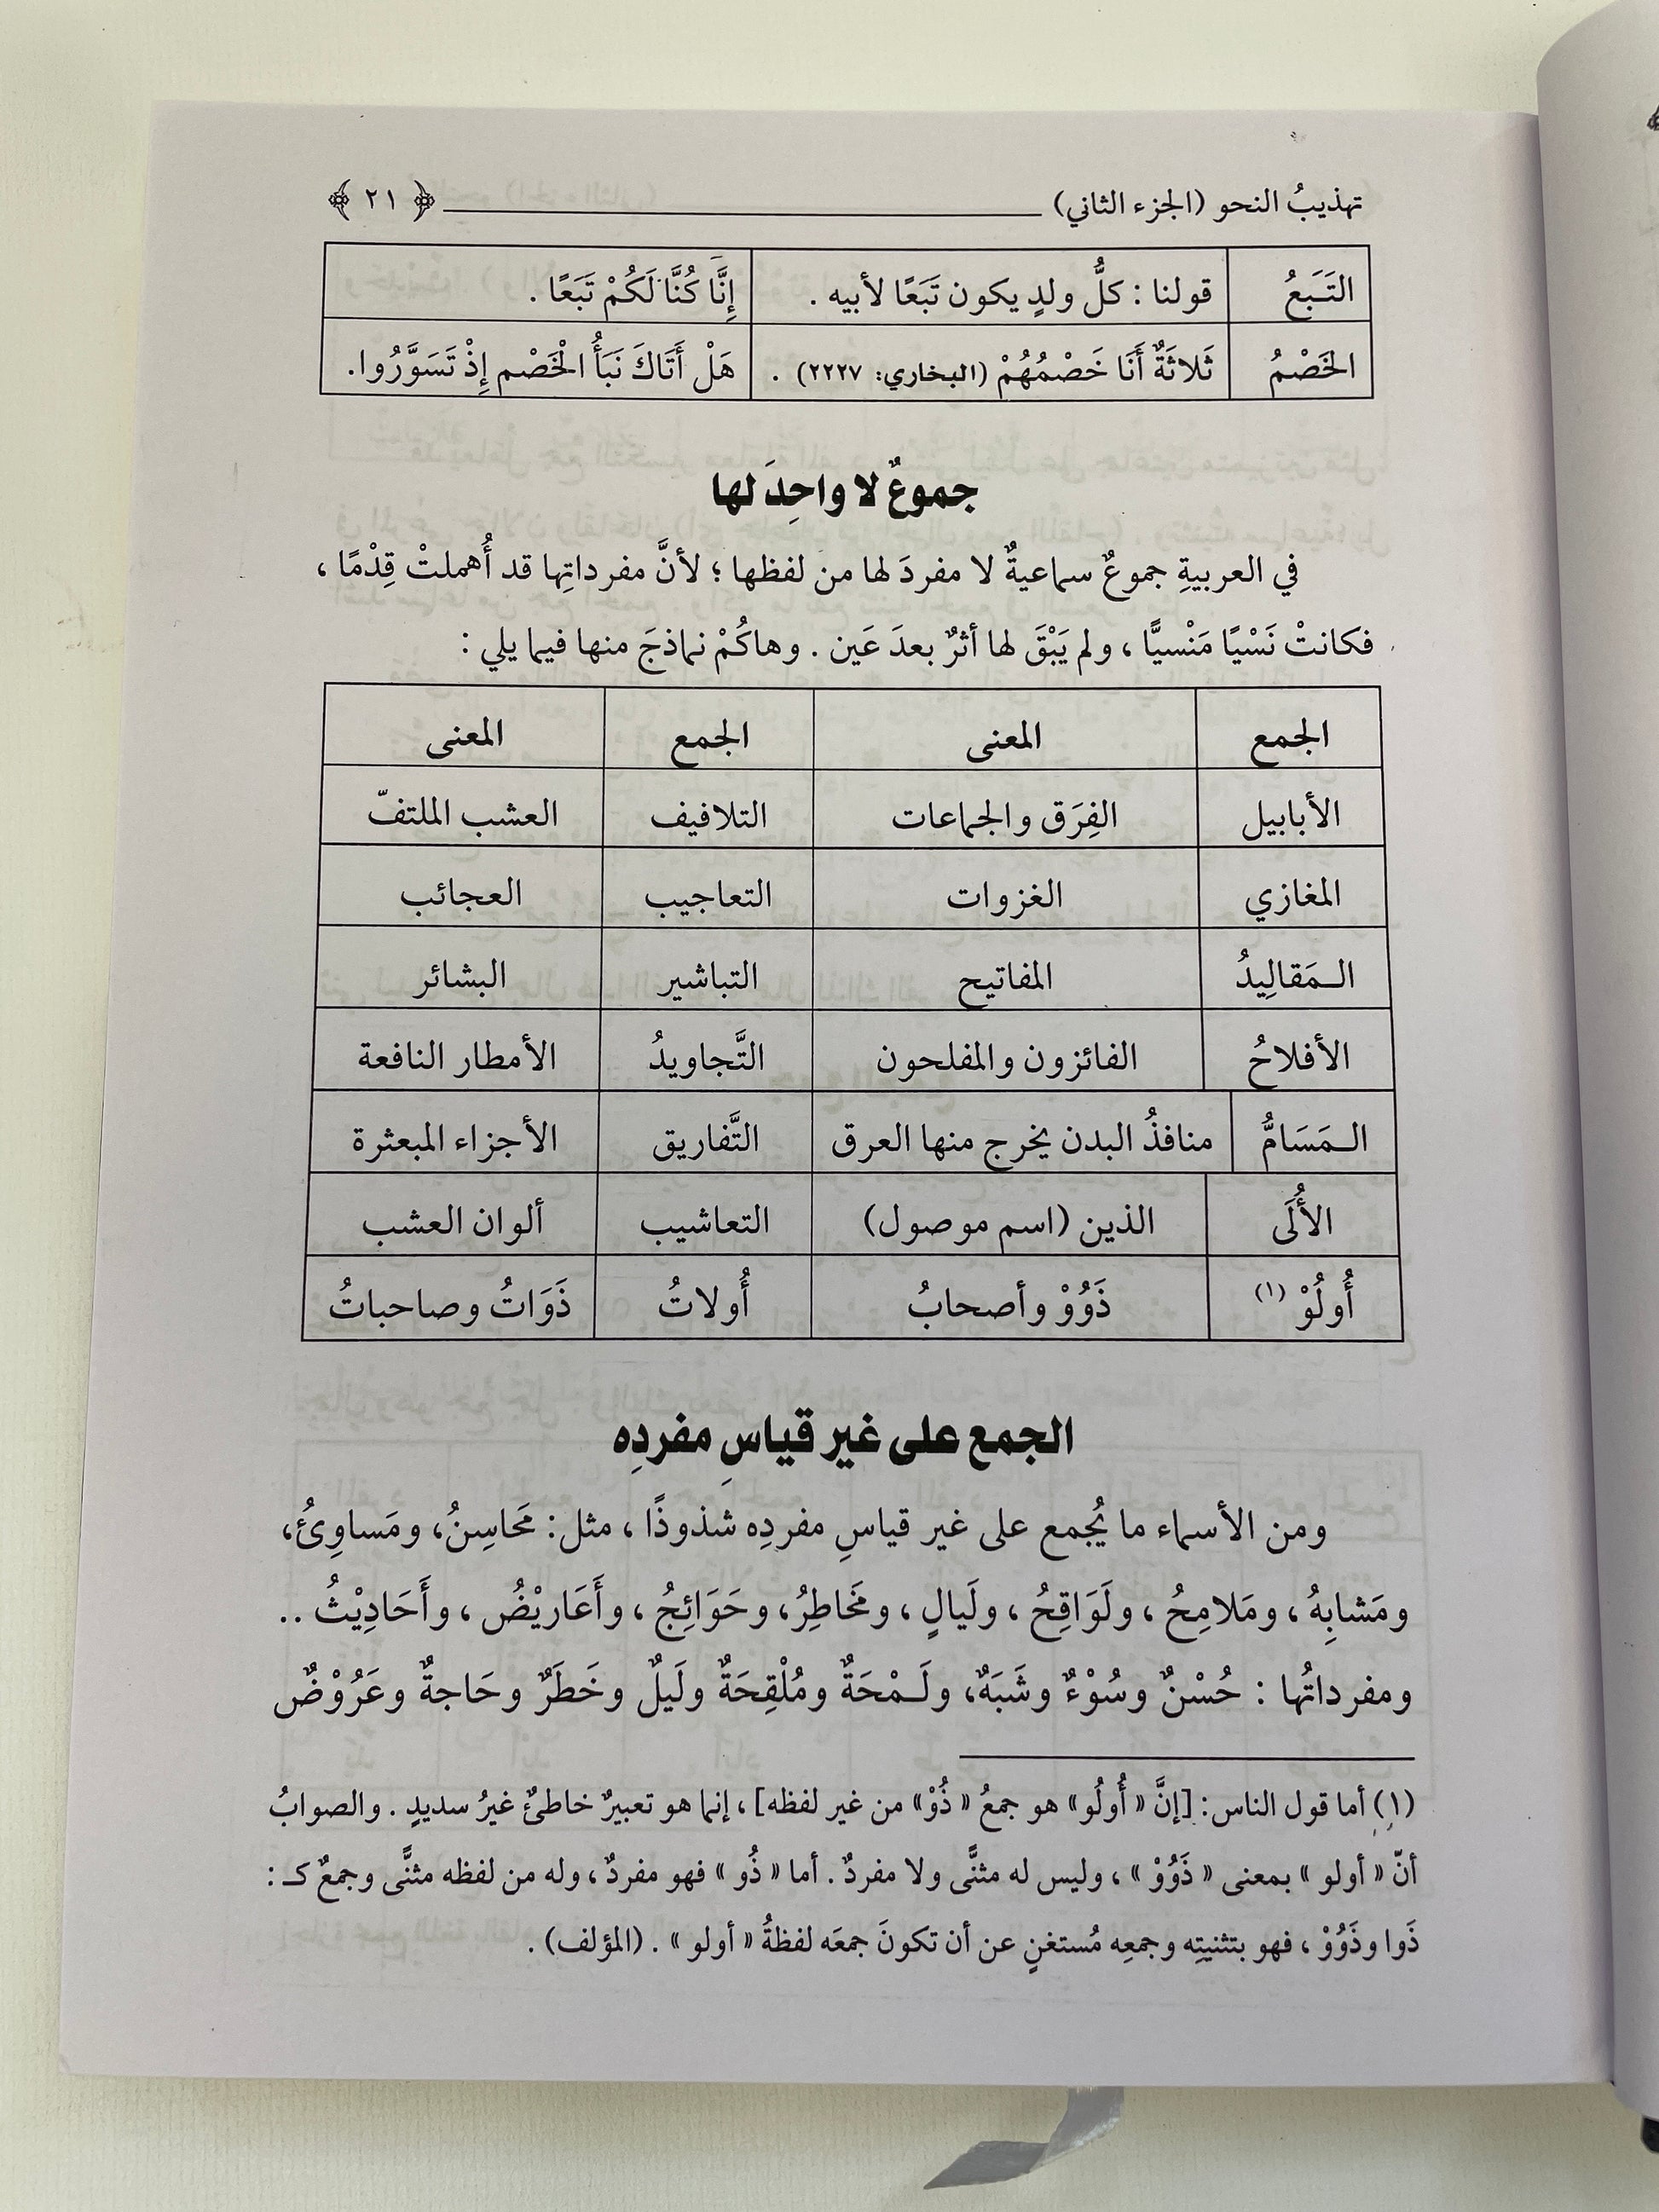 تهذيبُ النحو (الجزء الثاني) ﴿ ٢١ ﴾
التَـبَعُ قولنا : كلُّ ولدٍ يكون تَبَعًا لأبيه . إِنَّا كُنَّا لَكُمْ تَبَعًا .
الخَصْمُ ثَلاثَةٌ أَنَا خَصْمُهُمْ (البخاري: ٢٢٢٧) . هَلْ أَتَاكَ نَبَأُ الْخَصْم إِذْ تَسَوَّرُوا.
جموعٌ لا واحِدَ لها
في العربيةِ جموعٌ سماعيةٌ لا مفردَ لها من لفظها ؛ لأنَّ مفرداتِها قد أُهملتْ قِدْمًا ،
فكانتْ نَسْيًا مَنْسيًّا ، ولم يَبْقَ لها أثرٌ بعدَ عَين . وهاكُمْ نماذجَ منها فيما يلي :
الجمع المعنى الجمع المعنى
الأبابيل الفِرَق والجماعات التلافيف العشب الملتفّ
المغازي الغزوات التعاجيب العجائب
الـمَقالِيدُ المفاتيح التباشير البشائر
الأفلاحُ الفائزون والمفلحون التَّجاويدُ الأمطار النافعة
الـمَسَامُّ منافذُ البدن يخرج منها العرق التَّفاريق الأجزاء المبعثرة
الأُلَى الذين (اسم موصول) التعاشيب ألوان العشب
أُولُوْ (١) ذَوُوْ وأصحابُ أُولاتُ ذَوَاتُ وصاحباتُ
الجمع على غير قياسِ مفردِه
ومن الأسماء ما يُجمع على غير قياسِ مفردِه شذوذًا ، مثل: مَحَاسِنُ، ومَساوِئُ،
ومَشابِهُ ، ومَلامِحُ ، ولَوَاقِحُ ، ولَيالٍ ، ومَخَاطِرُ، وحَوَائِجُ ، وأَعَاريْضُ ، وأَحَادِيْثُ ..
ومفرداتُها : حُسْنٌ وسُوْءٌ وشَبَهٌ، ولَـمْحَةٌ ومُلْقِحَةٌ ولَيلٌ وخَطَرٌ وحَاجةٌ وعَرُوْضٌ
(١) أما قول الناس: [إنَّ « أُولُو» هو جمعُ « ذُوْ» من غير لفظه] ، إنما هو تعبيرٌ خاطئٌ غيرُ سديدٍ . والصوابُ
أنّ « أولو » بمعنى « ذَوُوْ » ، وليس له مثنًّى ولا مفردٌ . أما « ذُو » فهو مفردٌ ، وله من لفظه مثنًّى وجمعٌ كـ :
ذَوا وذَوُوْ ، فهو بتثنيتِه وجمعِه مُستغنٍ عن أن تكونَ جمعَه لفظةُ « أولو » . (المؤلف) .